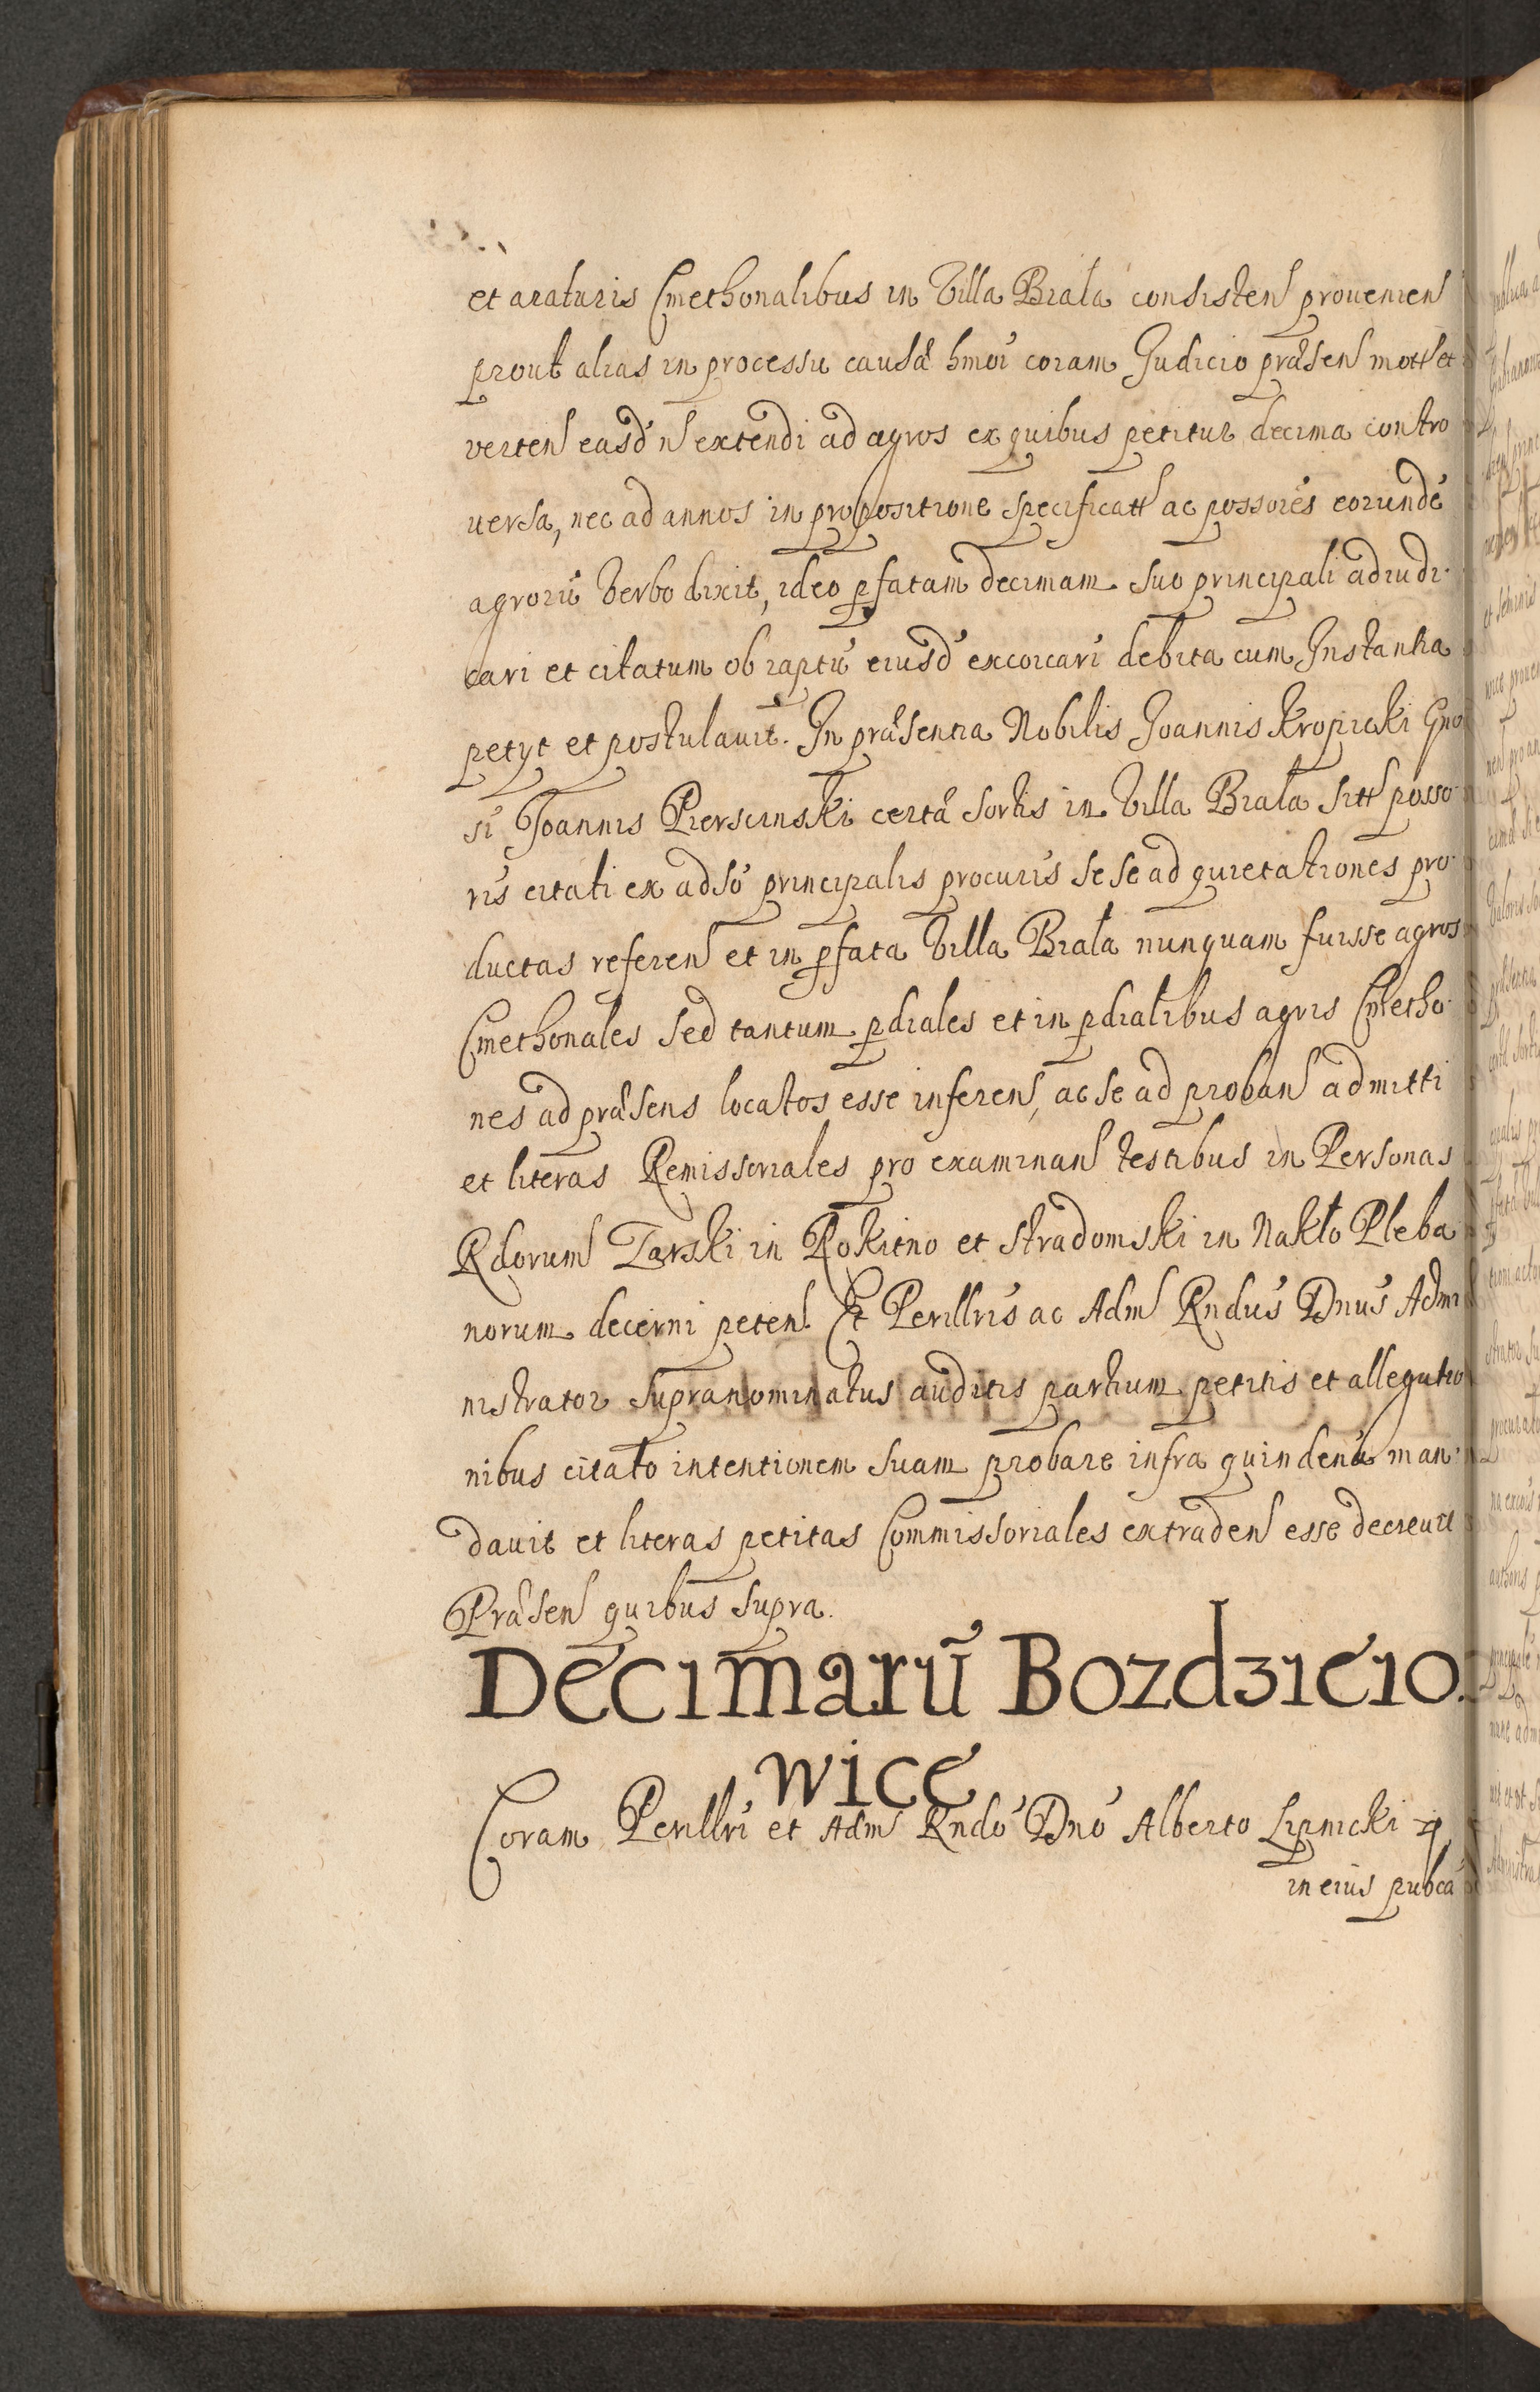 et araturis Cmethonalibus in Villa Biała consisten provenien
prout alias in processu causæ hmoi coram Judicio præsen mott et
verten easd n extendi ad agros ex quibus petitur decima contro
versa, nec ad annos in propositione specificatt ac possores eorundē
agrorū verbo dixit, ideo pfatam decimam suo principali adiudi-
cari et citatum ob raptū eiusd excoicari debita cum Instantia
petyt et postulavit. In præsentia Nobilis Joannis Kropicki Gno
si Joannis Pierscinski certæ sortis in Villa Biała sitt posso-
ris citati ex adso principalis procuris sese ad quietationes pro-
ductas referen et in pfata Villa Biała nunquam fuisse agros
Cmethonales sed tantum pdiales et in pdialibus agris Cmetho-
nes ad præsens locatos esse inferen, ac se ad proban admitti
et literas Remissoriales pro examinan testibus in Personas
Rdorum Zarski in Rokitno et Stradomski in Nakło Pleba
norum decerni peten. Et Perillris ac Adm Rndus Dnus Admi
nistrator supranominatus auditis partium petitis et allegatio
nibus citato intentionem suam probare infra quindenā man-
davit et literas petitas Commissoriales extraden esse decrevit
Præsen quibus supra.
Decimarū Bozdzieio-
wice
Coram Perillri et Adm Rndo Dno Alberto Lipnicki
in eius pubca